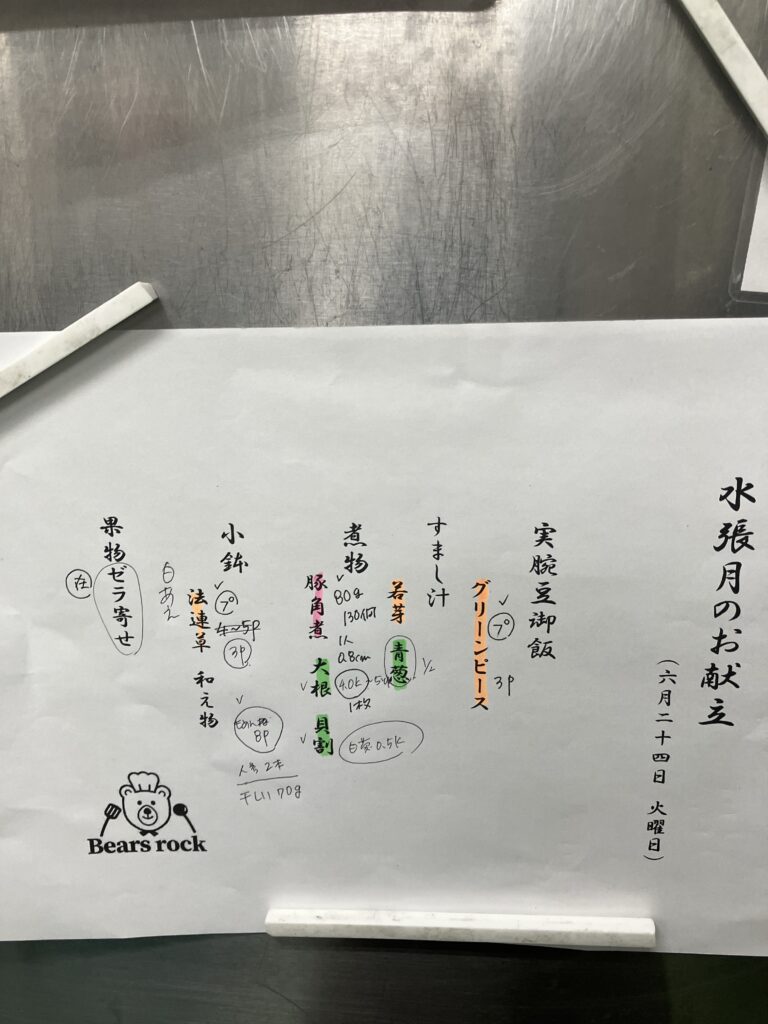 水張月のお献立
（六月二十四日 火曜日）
実腕豆御飯
グリーンピース
プ
3P
すまし汁
若芽 青葱
1/2
煮物
80g
130個
1人
0.8cm
4.0K
1枚
豚角煮 大根 貝割
白菜 0.5K
小鉢
プ
4〜5P
3P
8P
人参 2本
干しい 70g
法連草 和え物
白あえ
果物ゼラ寄せ
在
Bears rock